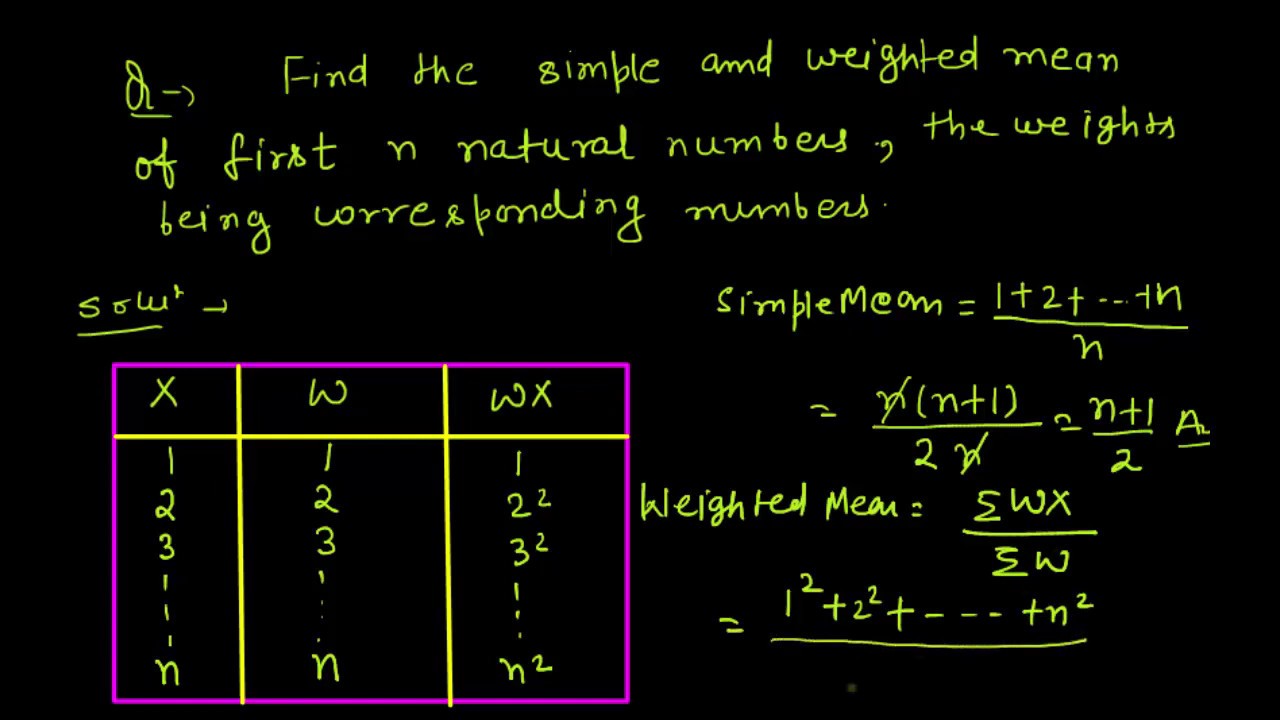 Q→ Find the simple and weighted mean
of first n natural numbers, the weights
being corresponding numbers.
Solⁿ →
X W WX
1 1 1
2 2 2²
3 3 3²
n n n²
Simple Mean = 1+2+---+n / n
= n(n+1) / 2n = n+1 / 2 A
Weighted Mean = ΣWX / ΣW
= 1²+2²+----+n²